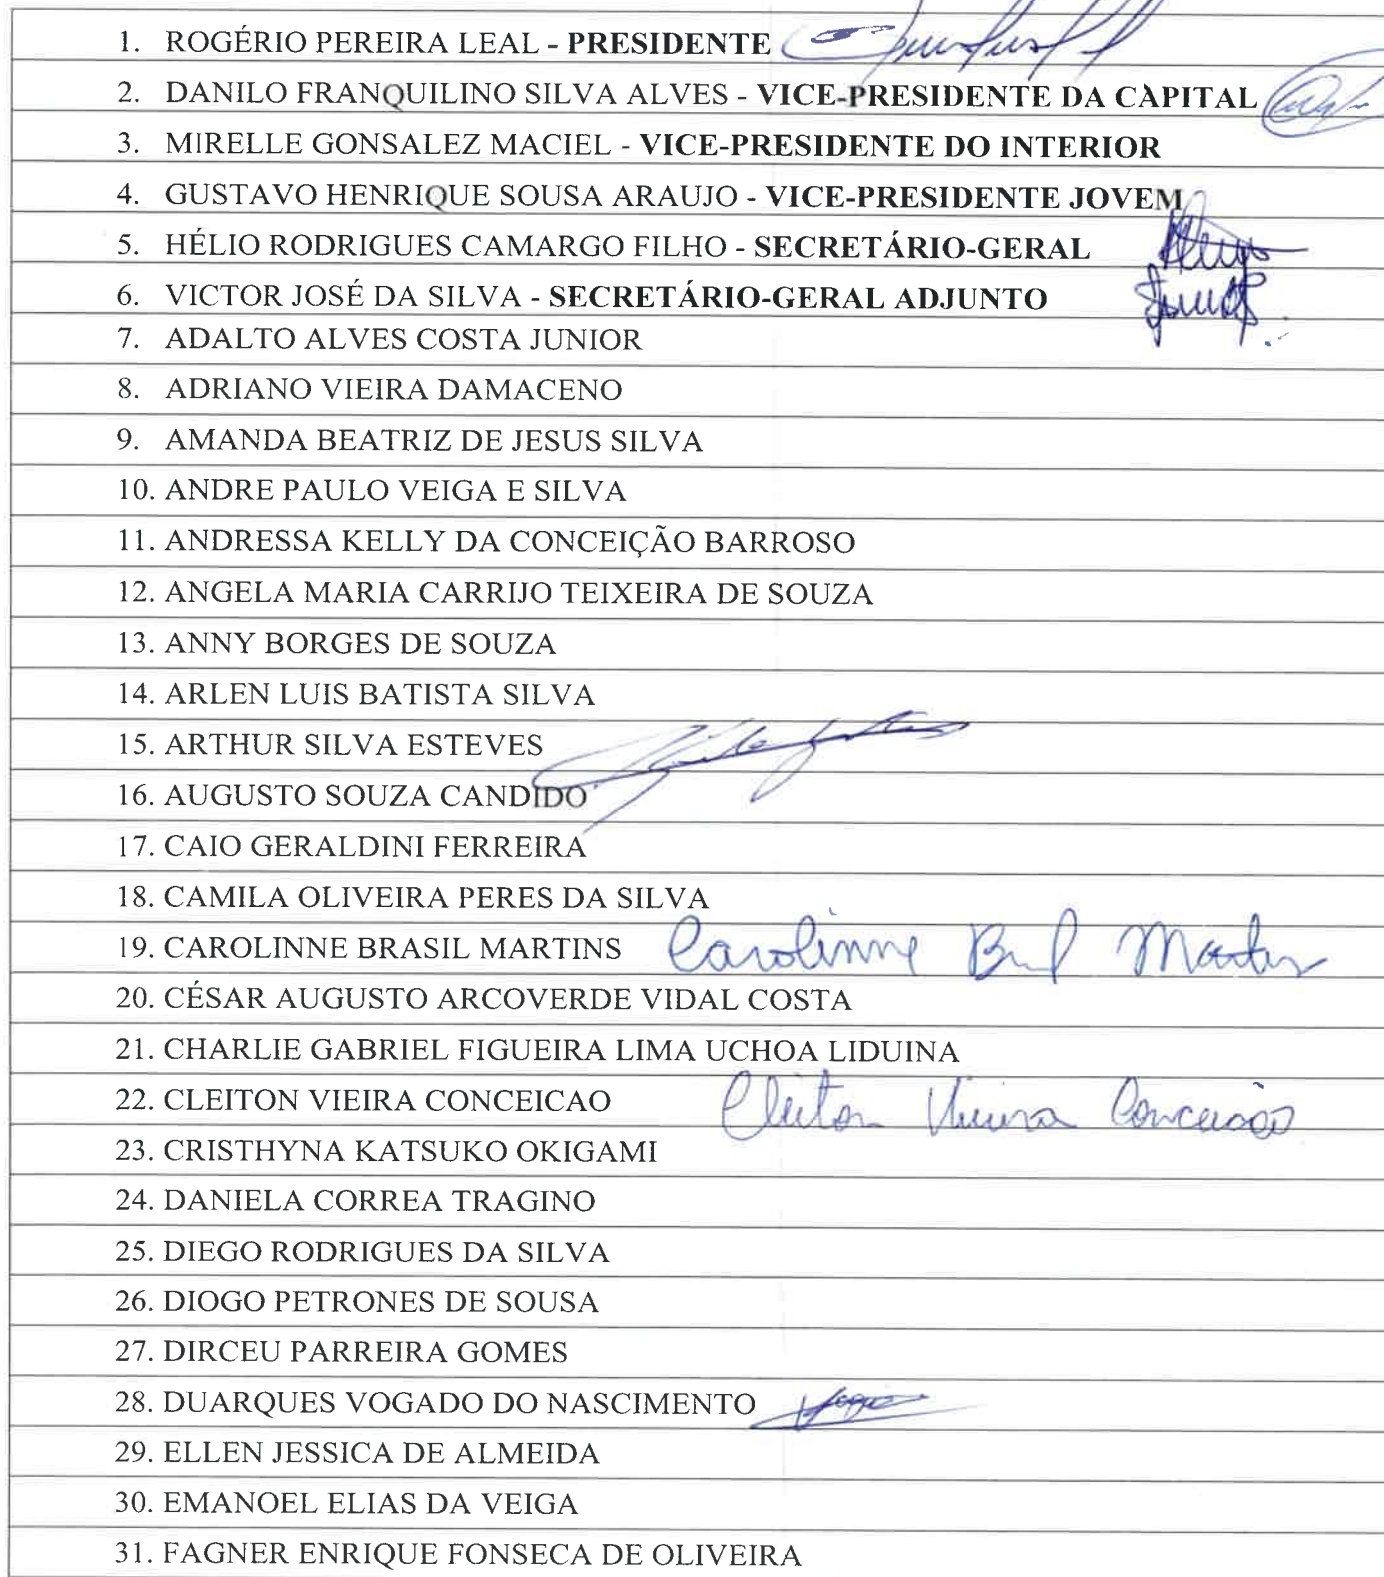 1. ROGÉRIO PEREIRA LEAL - PRESIDENTE
2. DANILO FRANQUILINO SILVA ALVES - VICE-PRESIDENTE DA CAPITAL
3. MIRELLE GONSALEZ MACIEL - VICE-PRESIDENTE DO INTERIOR
4. GUSTAVO HENRIQUE SOUSA ARAUJO - VICE-PRESIDENTE JOVEM
5. HÉLIO RODRIGUES CAMARGO FILHO - SECRETÁRIO-GERAL
6. VICTOR JOSÉ DA SILVA - SECRETÁRIO-GERAL ADJUNTO
7. ADALTO ALVES COSTA JUNIOR
8. ADRIANO VIEIRA DAMACENO
9. AMANDA BEATRIZ DE JESUS SILVA
10. ANDRE PAULO VEIGA E SILVA
11. ANDRESSA KELLY DA CONCEIÇÃO BARROSO
12. ANGELA MARIA CARRIJO TEIXEIRA DE SOUZA
13. ANNY BORGES DE SOUZA
14. ARLEN LUIS BATISTA SILVA
15. ARTHUR SILVA ESTEVES
16. AUGUSTO SOUZA CANDIDO
17. CAIO GERALDINI FERREIRA
18. CAMILA OLIVEIRA PERES DA SILVA
19. CAROLINNE BRASIL MARTINS Carolinne
20. CÉSAR AUGUSTO ARCOVERDE VIDAL COSTA
21. CHARLIE GABRIEL FIGUEIRA LIMA UCHOA LIDUINA
22. CLEITON VIEIRA CONCEICAO Cleiton Vieira Conceição
23. CRISTHYNA KATSUKO OKIGAMI
24. DANIELA CORREA TRAGINO
25. DIEGO RODRIGUES DA SILVA
26. DIOGO PETRONES DE SOUSA
27. DIRCEU PARREIRA GOMES
28. DUARQUES VOGADO DO NASCIMENTO
29. ELLEN JESSICA DE ALMEIDA
30. EMANOEL ELIAS DA VEIGA
31. FAGNER ENRIQUE FONSECA DE OLIVEIRA